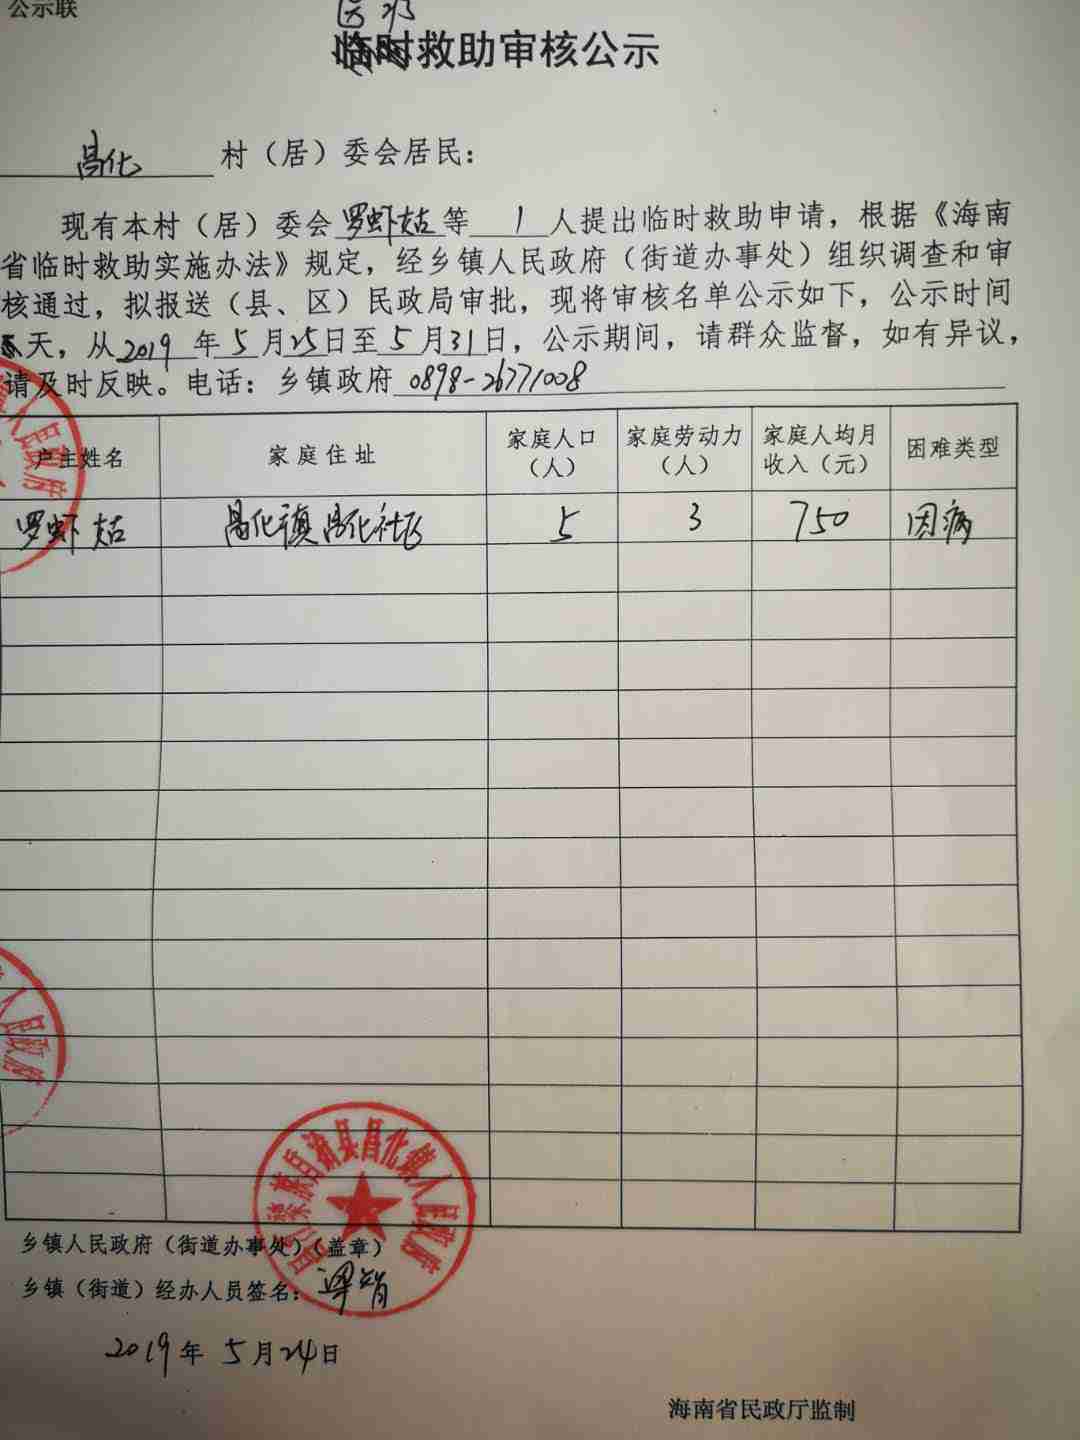 公示联
医疗
临时救助审核公示
昌化 村（居）委会居民：
现有本村（居）委会罗虾姑等 1 人提出临时救助申请，根据《海南
省临时救助实施办法》规定，经乡镇人民政府（街道办事处）组织调查和审
核通过，拟报送（县、区）民政局审批，现将审核名单公示如下，公示时间
天，从2019年5月25日至5月31日，公示期间，请群众监督，如有异议，
请及时反映。电话：乡镇政府 0898-26771008
户主姓名 家庭住址 家庭人口（人） 家庭劳动力（人） 家庭人均月收入（元） 困难类型
罗虾姑 昌化镇昌化社区 5 3 750 因病
人民政府
人民政府
昌江黎族自治县昌化镇人民政府
乡镇人民政府（街道办事处）（盖章）
乡镇（街道）经办人员签名：
2019年 5月24日
海南省民政厅监制